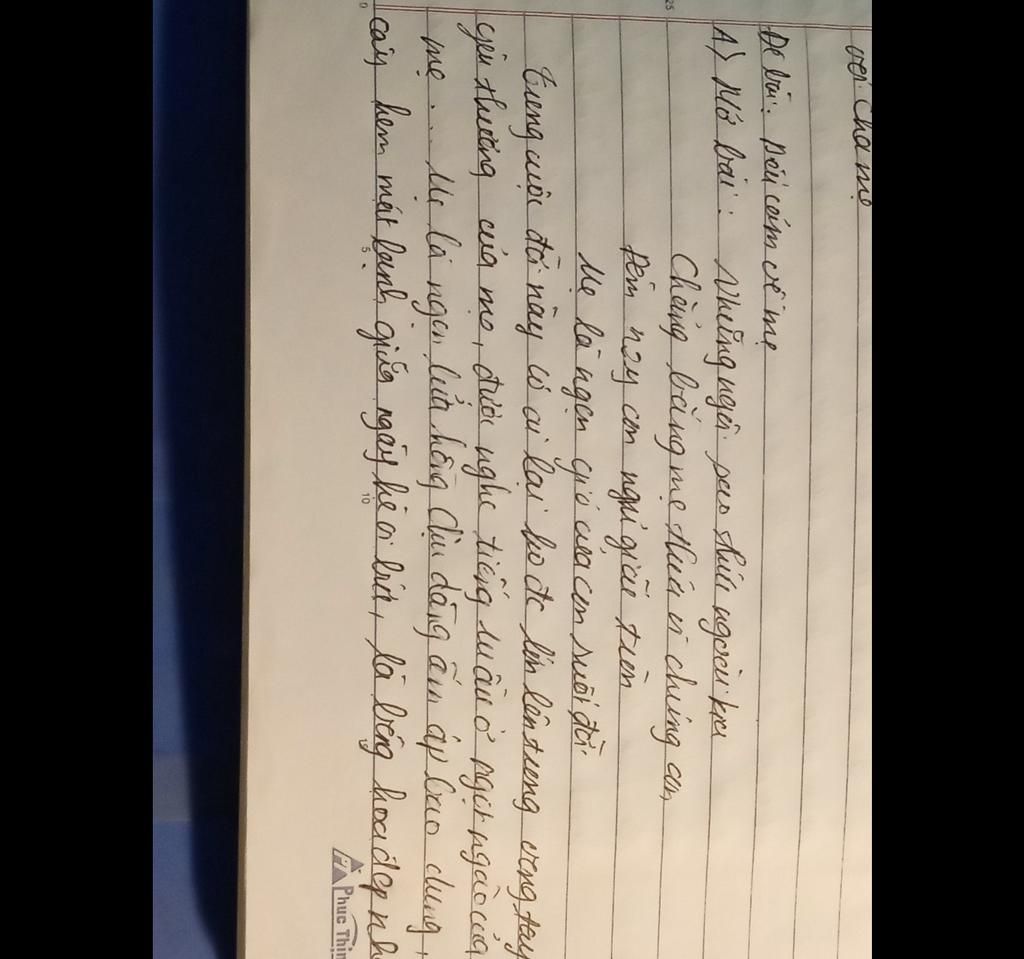 với cha mẹ
Đề bài: Biểu cảm về mẹ
A) Mở bài: Những ngôi sao thức ngoài kia
Chẳng bằng mẹ thức vì chúng con
Đêm nay con ngủ giấc tròn
Mẹ là ngọn gió của con suốt đời
Trong cuộc đời này có ai lại ko đc lớn lên trong vòng tay
yêu thương của mẹ, được nghe tiếng ru ầu ơ ngọt ngào của
mẹ... Mẹ là ngọn lửa hồng dịu dàng ấm áp bao dung,
cây kem mát lạnh giữa ngày hè oi bức, là bông hoa đẹp nh
25
0
5
10
Phuc Thin